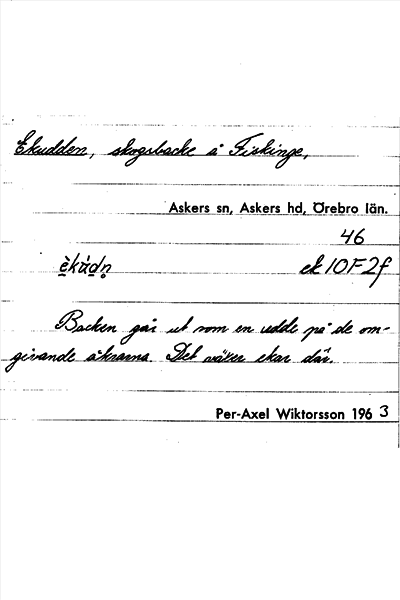 Ekudden, skogsbacke å Fiskinge,
Askers sn, Askers hd, Örebro län.
46
ek 10F2f
Backen går ut som en udde på de om-
givande åkrarna. Det växer ekar där.
Per-Axel Wiktorsson 1963